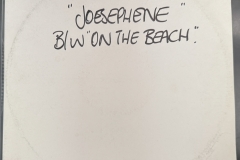 "JOESEPHENE"
B/W "ON THE BEACH".